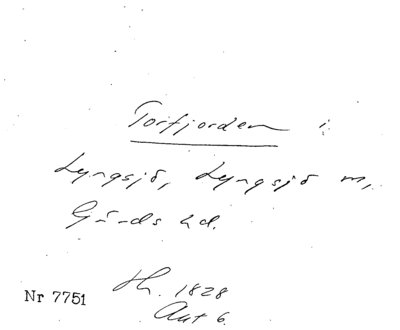 Torfjorden i
Lyngsjö, Lyngsjö m,
Gärds hd.
Hh. 1828
Akt 6.
Nr 7751